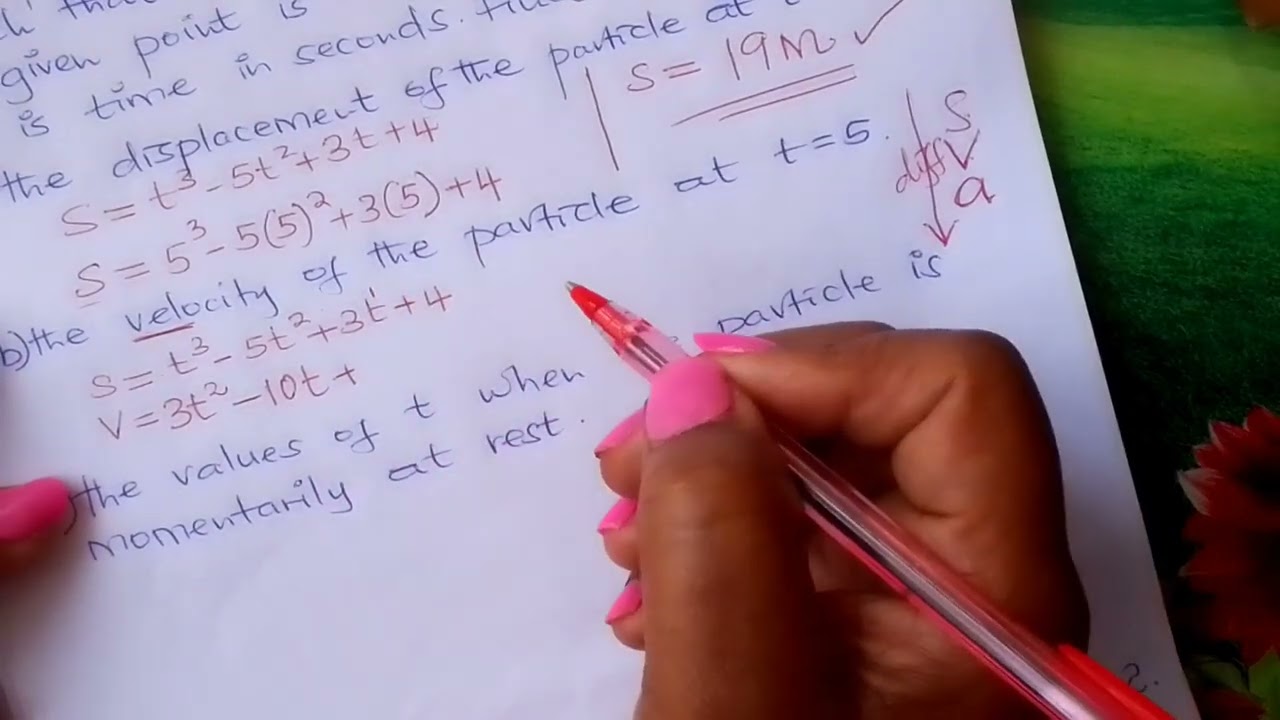 given point is
is time in seconds.
the displacement of the particle at
S = t³ - 5t² + 3t + 4
S = 5³ - 5(5)² + 3(5) + 4
S = 19m ✓
b) the velocity of the particle at t = 5.
S = t³ - 5t² + 3t¹ + 4
V = 3t² - 10t +
S
diff V
a
) the values of t when particle is
momentarily at rest.
2.